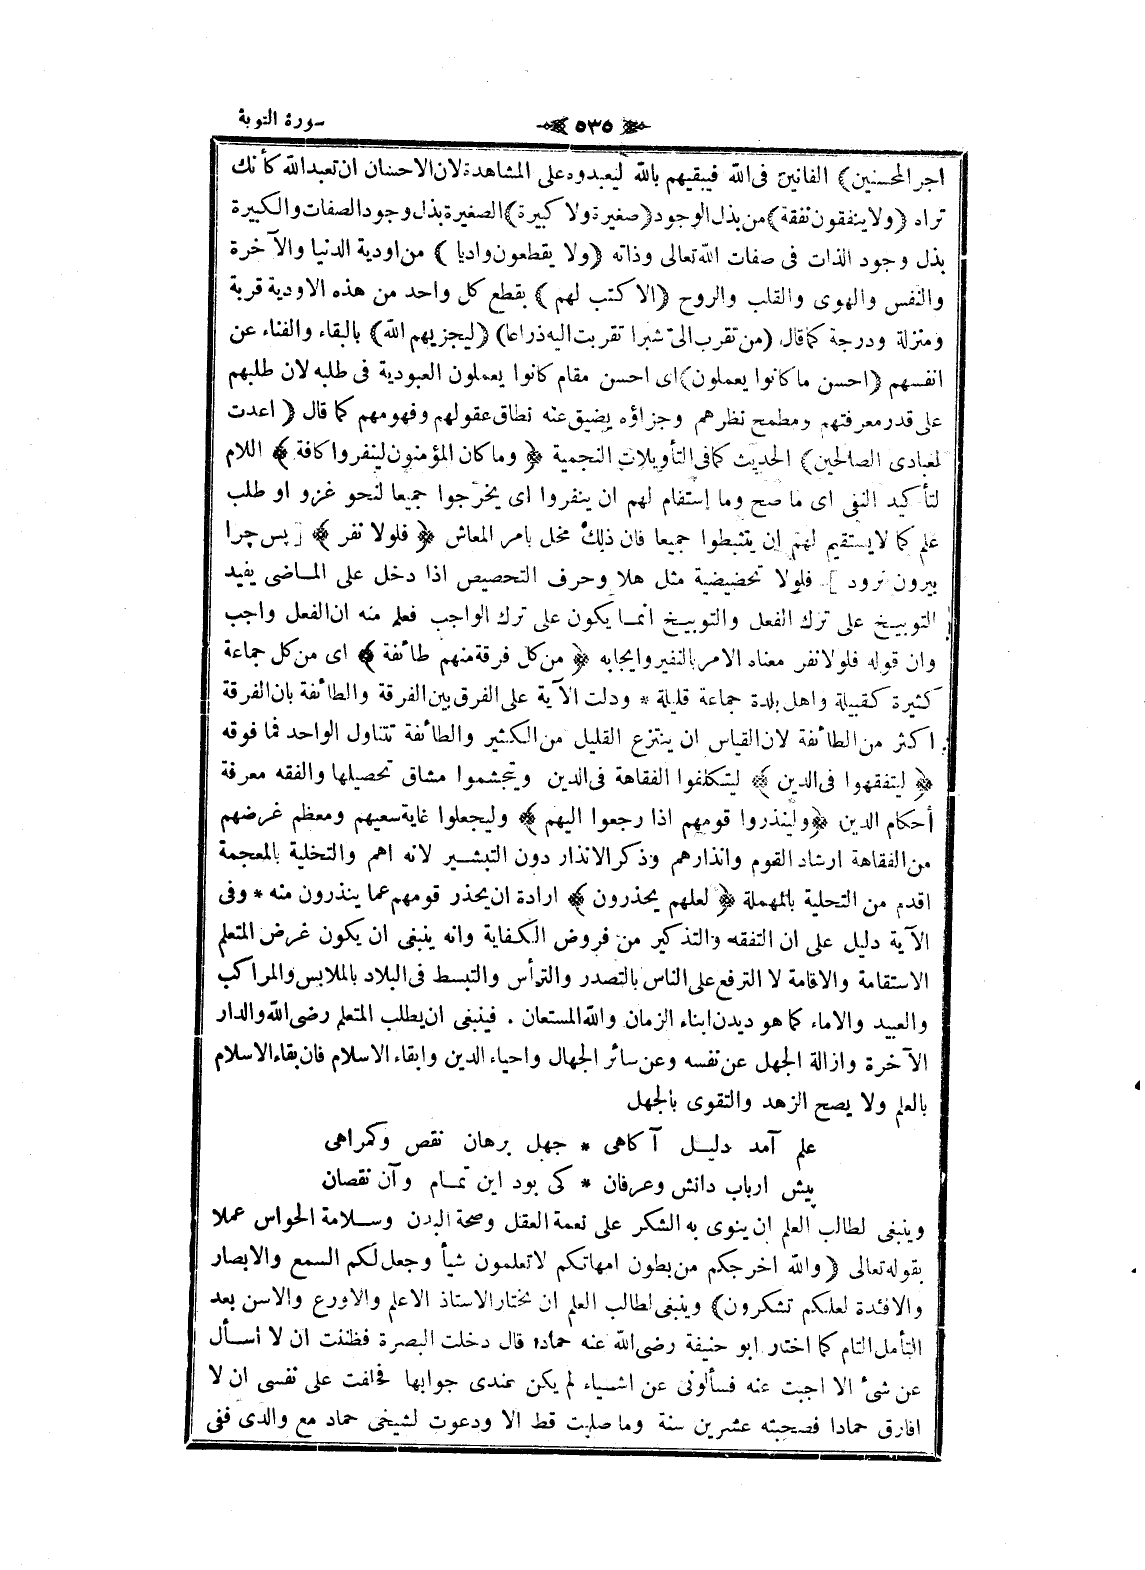 سورة التوبة
٥٣٥
اجر المحسنين) الفانين فى الله فيبقيهم بالله ليعبدوه على المشاهدة لان الاحسان ان تعبد الله كأنك
تراه (ولا ينفقون نفقة) من بذل الوجود (صغيرة ولا كبيرة) الصغيرة بذل وجود الصفات والكبيرة
بذل وجود الذات فى صفات الله تعالى وذاته (ولا يقطعون واديا) من اودية الدنيا والآخرة
والنفس والهوى والقلب والروح (الا كتب لهم) بقطع كل واحد من هذه الاودية قربة
ومنزلة ودرجة كما قال (من تقرب الىّ شبرا تقربت اليه ذراعا) (ليجزيهم الله) بالبقاء والفناء عن
انفسهم (احسن ما كانوا يعملون) اى احسن مقام كانوا يعملون العبودية فى طلبه لان طلبهم
على قدر معرفتهم ومطمح نظرهم وجزاؤه يضيق عنه نطاق عقولهم وفهومهم كما قال (اعدت
لعبادى الصالحين) الحديث كما فى التأويلات النجمية ﴿ وما كان المؤمنون لينفروا كافة ﴾ اللام
لتأكيد النفى اى ما صح وما استقام لهم ان ينفروا اى يخرجوا جميعا لنحو غزو او طلب
علم كما لا يستقيم لهم ان يتثبطوا جميعا فان ذلك مخل بامر المعاش ﴿ فلولا نفر ﴾ [ پس چرا
بيرون نرود ] فلولا تحضيضية مثل هلا وحرف التحضيض اذا دخل على الماضى يفيد
التوبيخ على ترك الفعل والتوبيخ انما يكون على ترك الواجب فعلم منه ان الفعل واجب
وان قوله فلولا نفر معناه الامر بالنفير وايجابه ﴿ من كل فرقة منهم طائفة ﴾ اى من كل جماعة
كثيرة كقبيلة واهل بلدة جماعة قليلة * ودلت الآية على الفرق بين الفرقة والطائفة بان الفرقة
اكثر من الطائفة لان القياس ان ينتزع القليل من الكثير والطائفة تتناول الواحد فما فوقه
﴿ ليتفقهوا فى الدين ﴾ ليتكلفوا الفقاهة فى الدين ويتجشموا مشاق تحصيلها والفقه معرفة
أحكام الدين ﴿ ولينذروا قومهم اذا رجعوا اليهم ﴾ وليجعلوا غاية سعيهم ومعظم غرضهم
من الفقاهة ارشاد القوم وانذارهم وذكر الانذار دون التبشير لانه اهم والتخلية بالمعجمة
اقدم من التحلية بالمهملة ﴿ لعلهم يحذرون ﴾ ارادة ان يحذر قومهم عما ينذرون منه * وفى
الآية دليل على ان التفقه والتذكير من فروض الكفاية وانه ينبغى ان يكون غرض المتعلم
الاستقامة والاقامة لا الترفع على الناس بالتصدر والترأس والتبسط فى البلاد بالملابس والمراكب
والعبيد والاماء كما هو ديدن ابناء الزمان والله المستعان . فينبغى ان يطلب المتعلم رضى الله والدار
الآخرة وازالة الجهل عن نفسه وعن سائر الجهال واحياء الدين وابقاء الاسلام فان بقاء الاسلام
بالعلم ولا يصح الزهد والتقوى بالجهل
علم آمد دليل آكاهى * جهل برهان نقص وكمراهى
پيش ارباب دانش وعرفان * كى بود اين تمام وآن نقصان
وينبغى لطالب العلم ان ينوى به الشكر على نعمة العقل وصحة البدن وسلامة الحواس عملا
بقوله تعالى (والله اخرجكم من بطون امهاتكم لا تعلمون شيأ وجعل لكم السمع والابصار
والافئدة لعلكم تشكرون) وينبغى لطالب العلم ان يختار الاستاذ الاعلم والاورع والاسن بعد
التأمل التام كما اختار ابو حنيفة رضى الله عنه حمادا قال دخلت البصرة فظننت ان لا اسأل
عن شئ الا اجبت عنه فسألونى عن اشياء لم يكن عندى جوابها فحلفت على نفسى ان لا
افارق حمادا فصحبته عشرين سنة وما صليت قط الا ودعوت لشيخى حماد مع والدى ففى